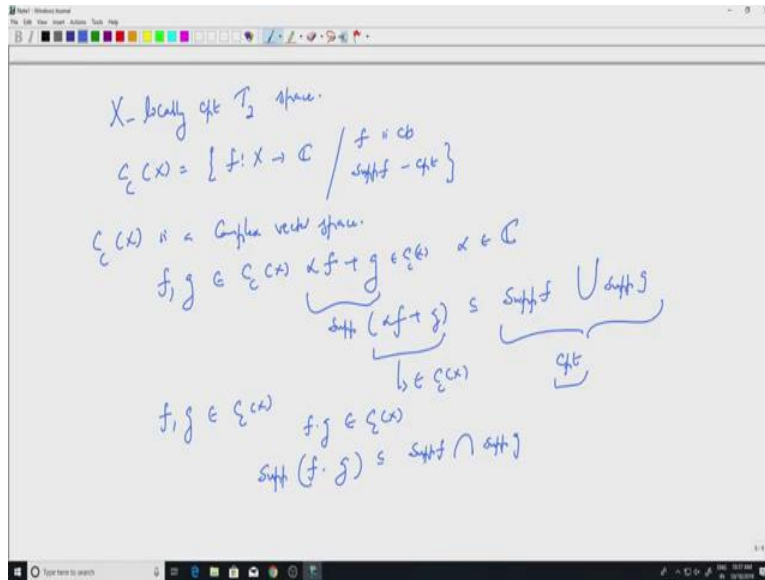 Note1 - Windows Journal
File Edit View Insert Actions Tools Help
X - locally cpt T₂ space.
C_c(X) = { f: X → ℂ / f is cb
supp f - cpt }
C_c(X) is a Complex vector space.
f, g ∈ C_c(X) αf + g ∈ C_c(X) α ∈ ℂ
supp (αf + g) ⊆ supp f ∪ supp g
↳ ∈ C_c(X) cpt
f, g ∈ C_c(X) f·g ∈ C_c(X)
supp (f·g) ⊆ supp f ∩ supp g
Type here to search